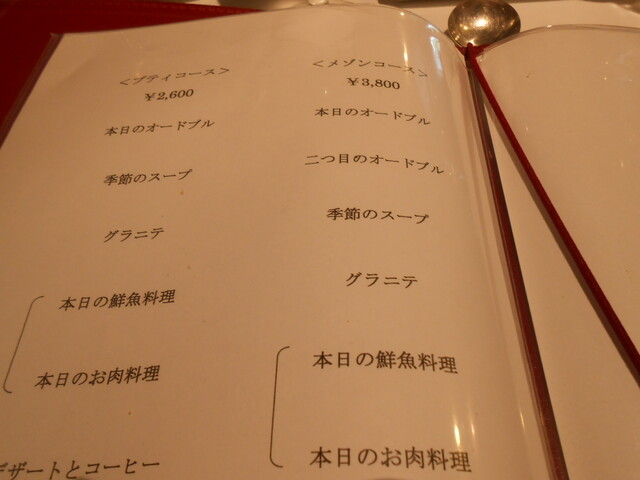 ＜プティコース＞
￥2,600
本日のオードブル
季節のスープ
グラニテ
本日の鮮魚料理
本日のお肉料理
デザートとコーヒー
＜メゾンコース＞
￥3,800
本日のオードブル
二つ目のオードブル
季節のスープ
グラニテ
本日の鮮魚料理
本日のお肉料理